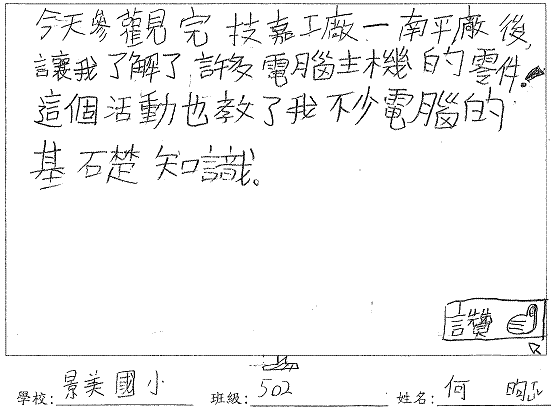 今天參觀完技嘉工廠一南平廠後,
讓我了解了許多電腦主機的零件。
這個活動也教了我不少電腦的
基石楚知識。
讚
學校: 景美國小 班級: 502 姓名: 何